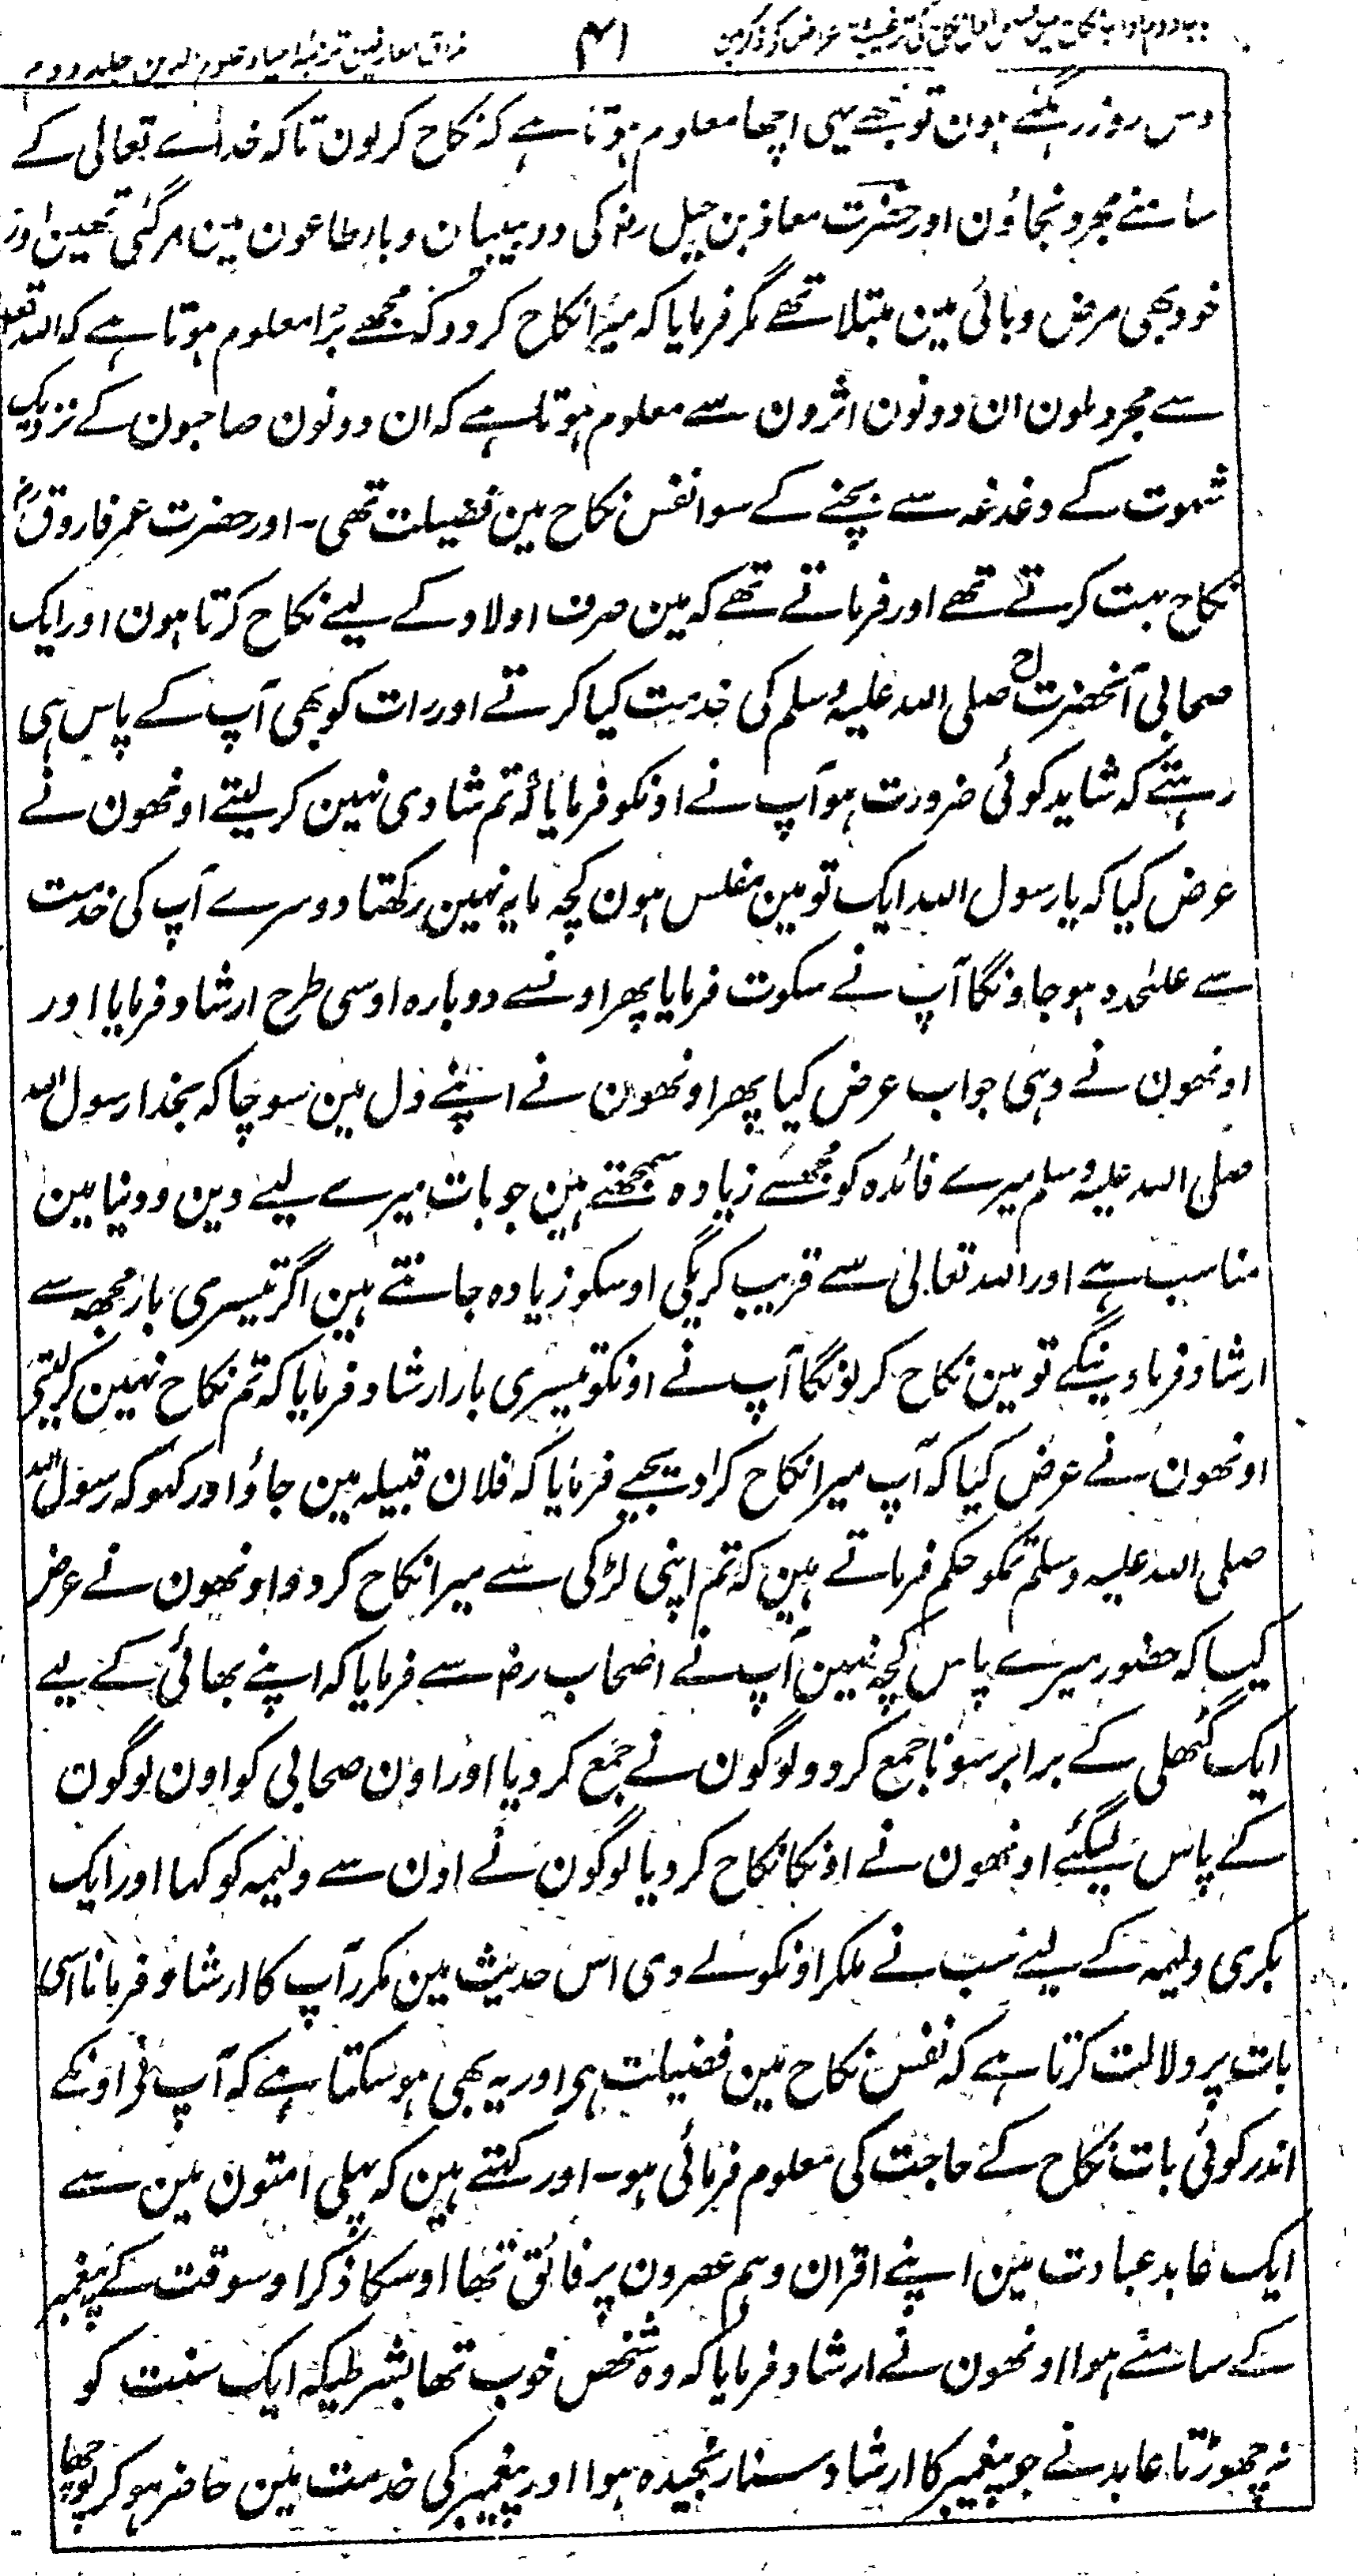 مذاق العارفین ترجمۂ احیاء علوم الدین جلد دوم
۴۱
دس روز رہگئے ہون تو مجھے یہی اچھا معلوم ہوتا ہے کہ نکاح کرلون تاکہ خداے تعالی کے
سامنے مجرد نجاؤن اور حضرت معاذ بن جبل رضہ کی دو بیبیان وبار طاعون مین مرگئی تھین اور
خود بھی مرض وبائی مین مبتلا تھے مگر فرمایا کہ میرا نکاح کردو کہ مجھے برا معلوم ہوتا ہے کہ اللہ تعہ
سے مجرد ملون ان دونون اثرون سے معلوم ہوتا ہے کہ ان دونون صاحبون کے نزدیک
شہوت کے دغدغہ سے بچنے کے سوا نفس نکاح مین فضیلت تھی۔ اور حضرت عمر فاروق رضہ
نکاح بہت کرتے تھے اور فرماتے تھے کہ مین صرف اولاد کے لیے نکاح کرتا ہون اور ایک
صحابی آنحضرت صلی اللہ علیہ وسلم کی خدمت کیا کرتے اور رات کو بھی آپ کے پاس ہی
رہتے کہ شاید کوئی ضرورت ہو آپ نے اونکو فرمایا کہ تم شادی نہین کرلیتے اونھون نے
عرض کیا کہ یا رسول اللہ ایک تو مین مفلس ہون کچہ مایہ نہین رکھتا دوسرے آپ کی خدمت
سے علٰحدہ ہوجاونگا آپ نے سکوت فرمایا پھر اونسے دوبارہ اوسی طرح ارشاد فرمایا اور
اونھون نے وہی جواب عرض کیا پھر اونھون نے اپنے دل مین سوچا کہ بخدا رسول اللہ
صلی اللہ علیہ وسلم میرے فائدہ کو مجھسے زیادہ سمجھتے ہین جو بات میرے لیے دین و دنیا مین
مناسب ہے اور اللہ تعالی سے قریب کریگی اوسکو زیادہ جانتے ہین اگر تیسری بار مجھہ سے
ارشاد فرماوینگے تو مین نکاح کرلونگا آپ نے اونکو تیسری بار ارشاد فرمایا کہ تم نکاح نہین کرلیتے
اونھون نے عرض کیا کہ آپ میرا نکاح کرا دیجیے فرمایا کہ فلان قبیلہ مین جاؤ اور کہو کہ رسول اللہ
صلی اللہ علیہ وسلم تمکو حکم فرماتے ہین کہ تم اپنی لڑکی سے میرا نکاح کردو اونھون نے عرض
کیا کہ حضور میرے پاس کچہ نہین آپ نے اصحاب رضہ سے فرمایا کہ اپنے بھائی کے لیے
ایک گٹھلی کے برابر سونا جمع کردو لوگون نے جمع کردیا اور اون صحابی کو اون لوگون
کے پاس لیگئے اونھون نے اونکا نکاح کردیا لوگون نے اون سے ولیمہ کو کہا اور ایک
بکری ولیمہ کے لیے سب نے ملکر اونکو لے دی اس حدیث مین مکرر آپ کا ارشاد فرمانا اسی
بات پر دلالت کرتا ہے کہ نفس نکاح مین فضیلت ہی اور یہ بھی ہوسکتا ہے کہ آپ نی اونکے
اندر کوئی بات نکاح کے حاجت کی معلوم فرمائی ہو۔ اور کہتے ہین کہ پہلی امتون مین سے
ایک عابد عبادت مین اپنے اقران و ہم عصرون پر فائق تھا اوسکا ذکر اوسوقت کے پیغمبر
کے سامنے ہوا اونھون نے ارشاد فرمایا کہ وہ شخص خوب تھا بشرطیکہ ایک سنت کو
نہ چھوڑتا عابد نے جو پیغمبر کا ارشاد سنا رنجیدہ ہوا اور پیغمبر کی خدمت مین حاضر ہوکر پوچھا